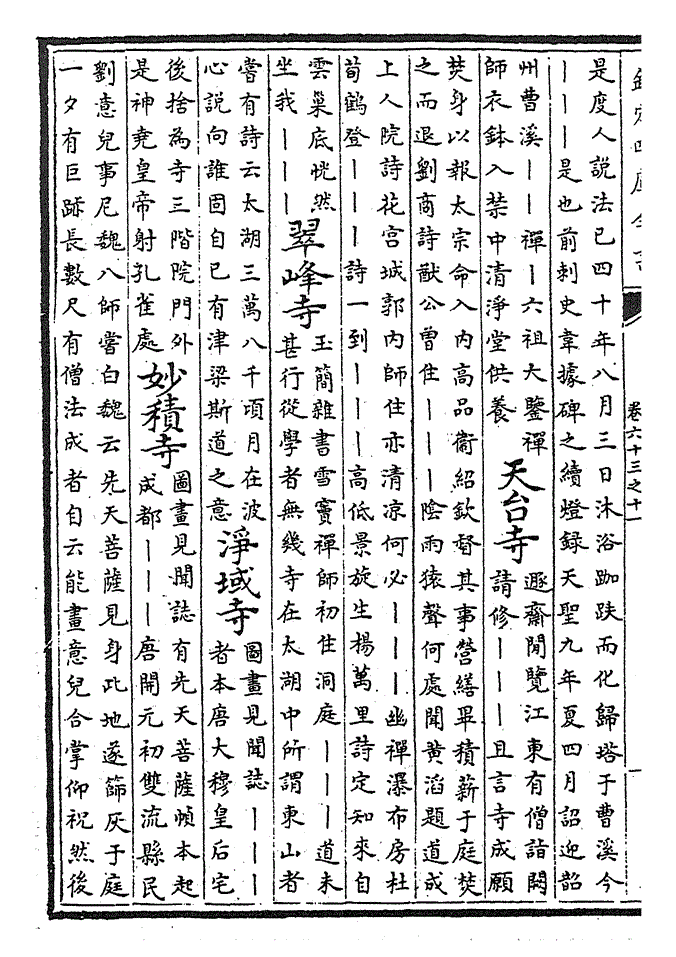 欽定四庫全書
卷六十三之十一
是度人說法已四十年八月三日沐浴跏趺而化歸塔于曹溪今
丨丨丨是也前刺史韋據碑之續燈錄天聖九年夏四月詔迎韶
州曹溪丨丨禪丨六祖大鑒禪
師衣鉢入禁中清淨堂供養
天台寺
遯齋閒覽江東有僧詣闕
請修丨丨丨且言寺成願
焚身以報太宗命入内高品衞紹欽督其事營繕畢積薪于庭焚
之而退劉商詩猷公曾住丨丨丨陰雨猿聲何處聞黄滔題道成
上人院詩花宫城郭内師住亦清凉何必丨丨丨幽禪瀑布房杜
荀鶴登丨丨丨詩一到丨丨丨高低景旋生楊萬里詩定知來自
雲巢底恍然
坐我丨丨丨
翠峰寺
玉簡雜書雪竇禪師初住洞庭丨丨丨道未
甚行從學者無幾寺在太湖中所謂東山者
嘗有詩云太湖三萬八千頃月在波
心說向誰固自已有津梁斯道之意
淨域寺
圖畫見聞誌丨丨丨
者本唐大穆皇后宅
後捨為寺三階院門外
是神堯皇帝射孔雀處
妙積寺
圖畫見聞誌有先天菩薩幀本起
成都丨丨丨唐開元初雙流縣民
劉意兒事尼魏八師嘗白魏云先天菩薩見身此地遂篩灰于庭
一夕有巨跡長數尺有僧法成者自云能畫意兒合掌仰祝然後